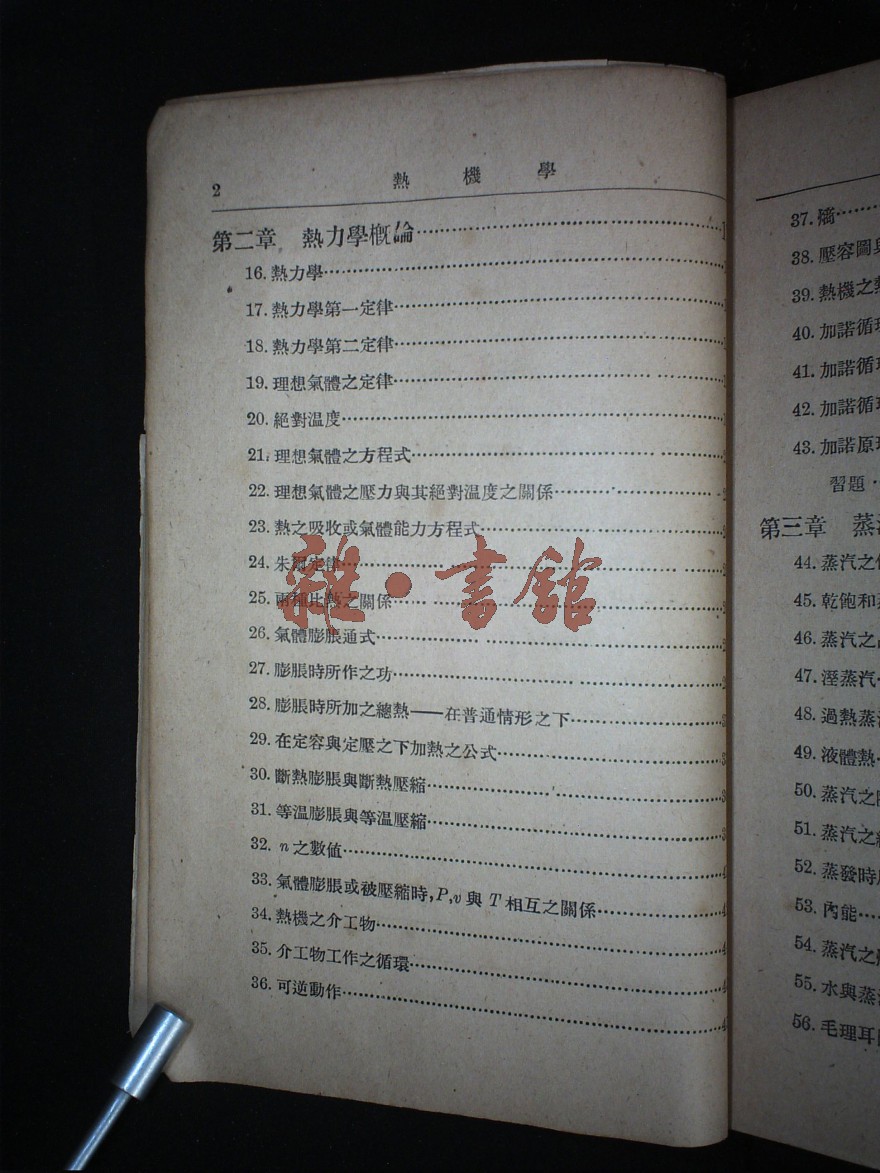 2
熱機學
第二章 熱力學概論
16. 熱力學
17. 熱力學第一定律
18. 熱力學第二定律
19. 理想氣體之定律
20. 絕對温度
21. 理想氣體之方程式
22. 理想氣體之壓力與其絕對温度之關係
23. 熱之吸收或氣體能力方程式
24. 朱爾定律
25. 兩種比熱之關係
26. 氣體膨脹通式
27. 膨脹時所作之功
28. 膨脹時所加之總熱——在普通情形之下
29. 在定容與定壓之下加熱之公式
30. 斷熱膨脹與斷熱壓縮
31. 等温膨脹與等温壓縮
32. n之數值
33. 氣體膨脹或被壓縮時, P,v 與 T 相互之關係
34. 熱機之介工物
35. 介工物工作之循環
36. 可逆動作
雜·書館
37.
38. 壓容圖
39. 熱機之
40. 加諾循
41. 加諾循
42. 加諾循
43. 加諾原
習題
第三章 蒸
44. 蒸汽之
45. 乾飽和
46. 蒸汽之
47. 溼蒸汽
48. 過熱蒸
49. 液體熱
50. 蒸汽之
51. 蒸汽之
52. 蒸發時
53. 內能
54. 蒸汽之
55. 水與蒸
56. 毛理耳